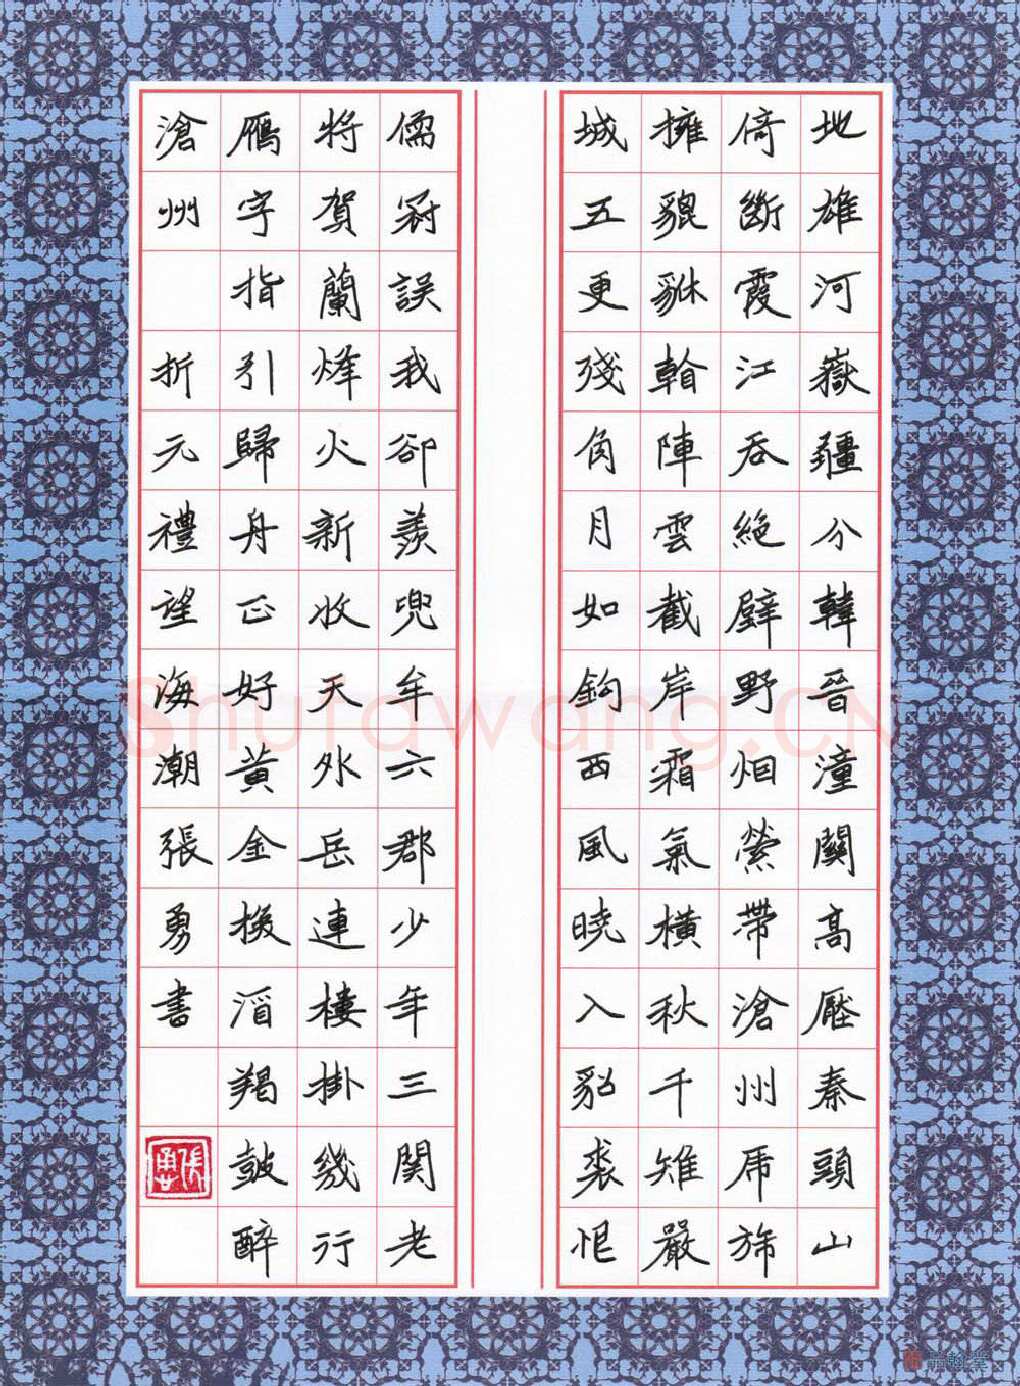 地雄河嶽疆分韓晉潼關高壓秦頭山
倚斷霞江吞絕壁野烟縈帶滄州虎旆
擁貔貅陣雲截岸霜氣橫秋千雉嚴
城五更殘角月如鈎西風曉入貂裘恨
儒冠誤我卻羨兜牟六郡少年三関老
將賀蘭烽火新收天外岳連樓掛幾行
鴈字指引歸舟正好黃金換酒羯鼓醉
滄州 折元禮望海潮張勇書
張勇
Shufawang.CN